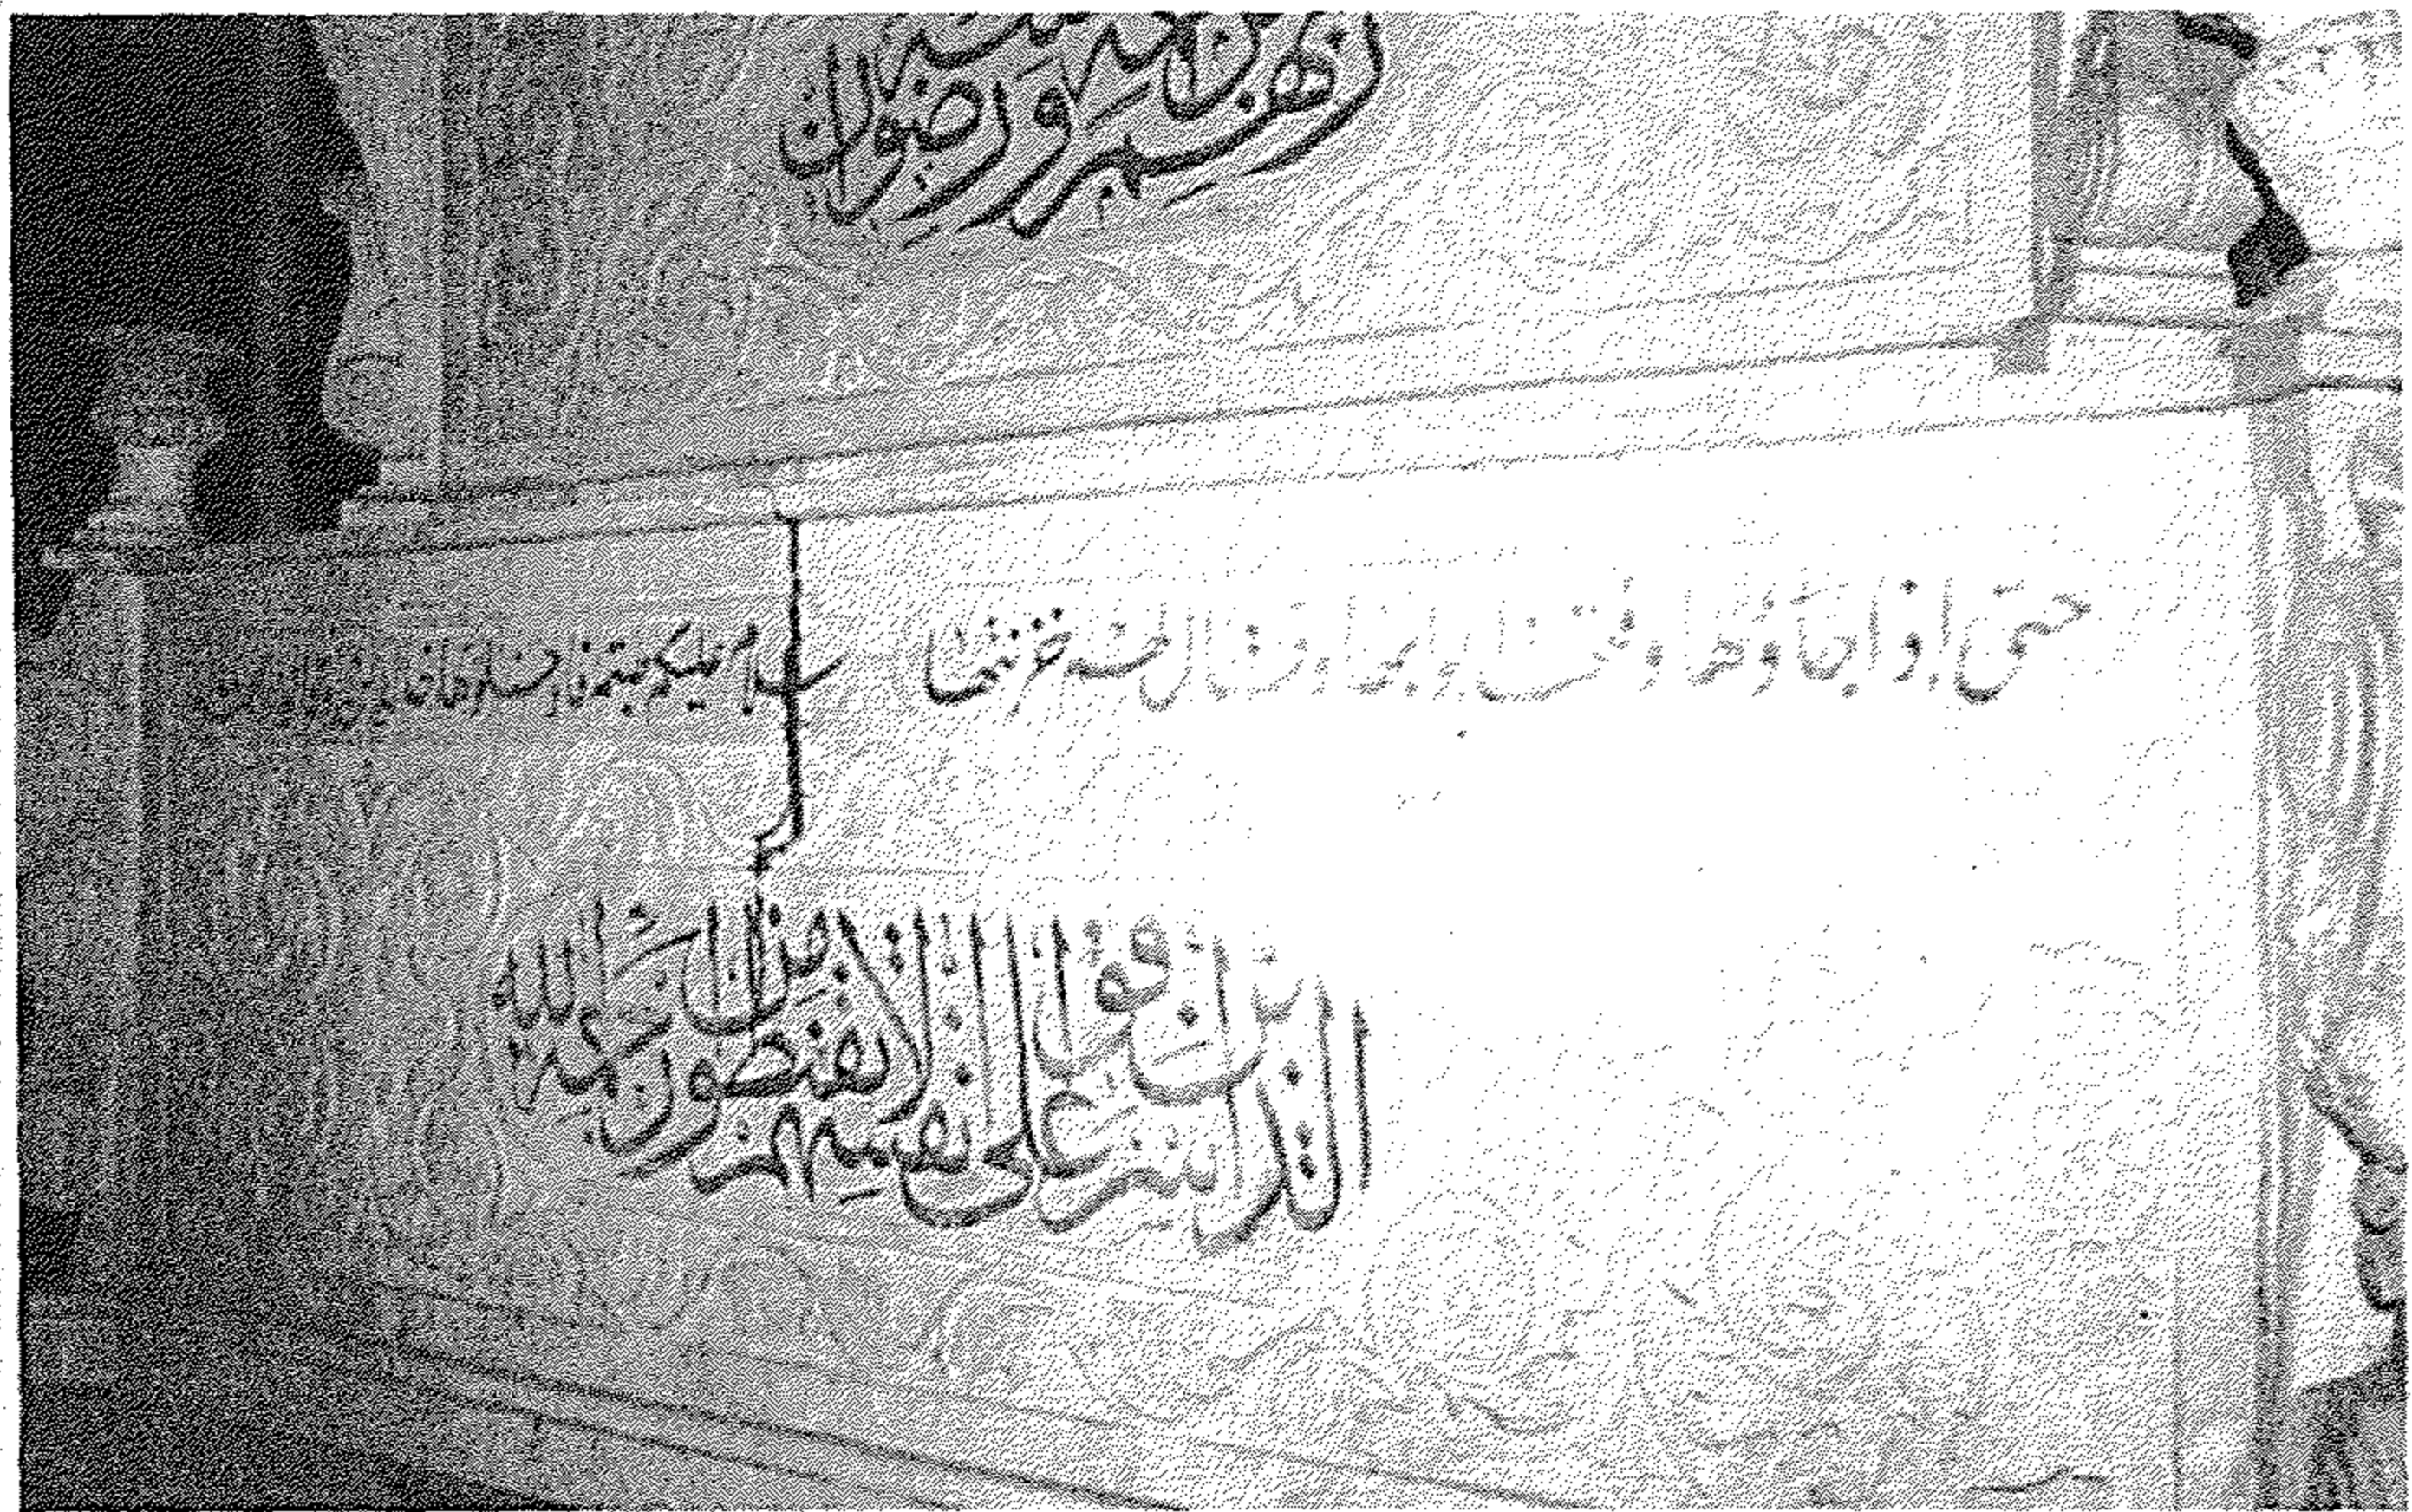 ورضوان
حتى إذا جاؤها وفتحت أبوابها وقال لهم خزنتها سلام عليكم طبتم فادخلوها خالدين
الذين اسرفوا على انفسهم لا تقنطوا من رحمة الله